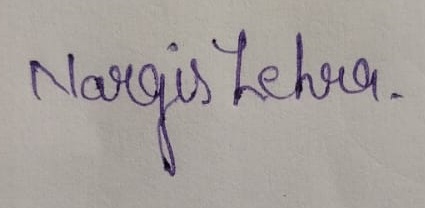 Nargis Lehra.